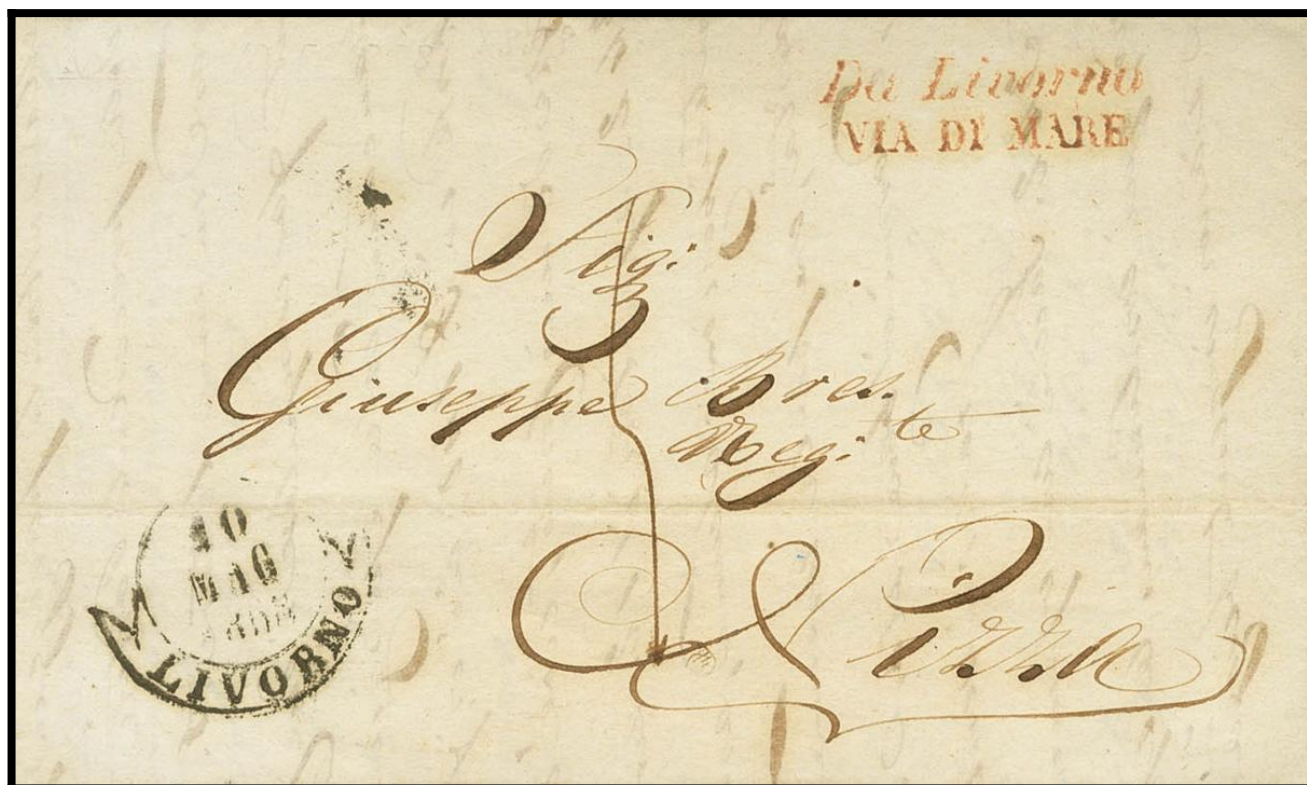 Da Livorno
VIA DI MARE
Sig:
Giuseppe Bres.
Neg:te
Nizza
10
MAG
LIVORNO